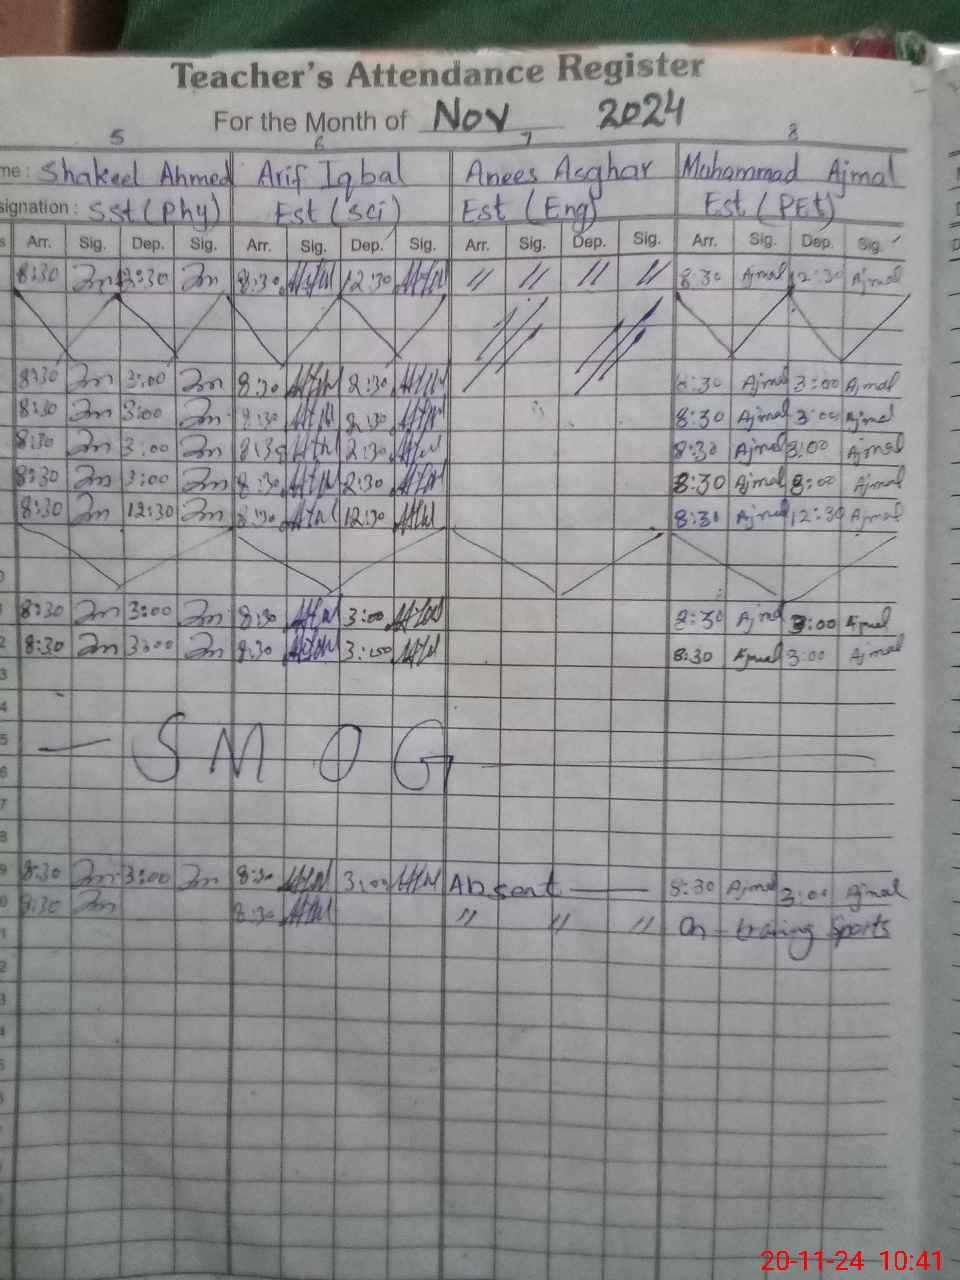 Teacher's Attendance Register
For the Month of Nov 2024
5 6 7 8
me: Shakeel Ahmed Arif Iqbal Anees Asghar Muhammad Ajmal
signation: SSt (Phy) Est (Sci) Est (Eng) Est (PEt)
s Arr. Sig. Dep. Sig. Arr. Sig. Dep. Sig. Arr. Sig. Dep. Sig. Arr. Sig. Dep. Sig.
8:30 12:30 8:30 12:30 // // // // 8:30 Ajmal 12:30 Ajmal
8:30 3:00 8:30 2:30 8:30 Ajmal 3:00 Ajmal
8:30 3:00 8:30 2:30 8:30 Ajmal 3:00 Ajmal
8:30 3:00 8:30 2:30 8:30 Ajmal 3:00 Ajmal
8:30 3:00 8:30 2:30 8:30 Ajmal 3:00 Ajmal
8:30 12:30 8:30 12:30 8:30 Ajmal 12:30 Ajmal
0
8:30 3:00 8:30 3:00 8:30 Ajmal 3:00 Ajmal
2 8:30 3:00 8:30 3:00 8:30 Ajmal 3:00 Ajmal
3
4
5 — SMOG —
6
7
8
9 8:30 3:00 8:30 3:00 Absent — 8:30 Ajmal 3:00 Ajmal
0 8:30 8:30 // // // On - traning Sports
1
2
3
4
5
20-11-24 10:41